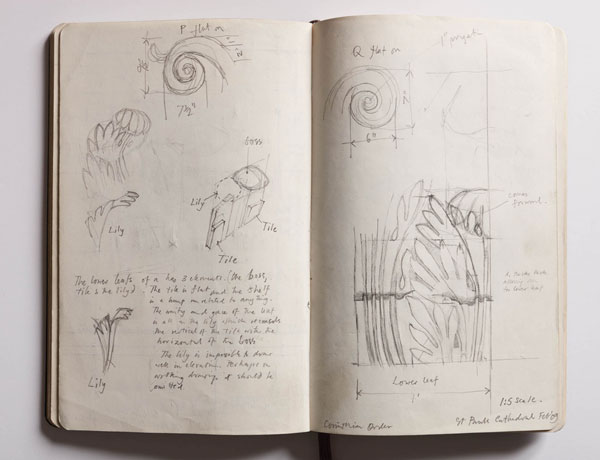 P flat on
7½"
boss
Lily
Lily
Tile
Tile
The lower leafs of a has 3 elements (the boss,
tile & the lily). The tile is flat and the itself
is a bump un related to anything.
The unity and grace of the leaf
is all in the lily which
the vertical of the tile with the
horizontal of the boss
The lily is impossible to draw
well in elevation. Perhaps in
working drawings it should be
omitted.
Lily
Q flat on
1"
7"
6"
comes
forward
Lower leaf
1:5 scale.
Corinthian Order
St Pauls Cathedral Feb 09